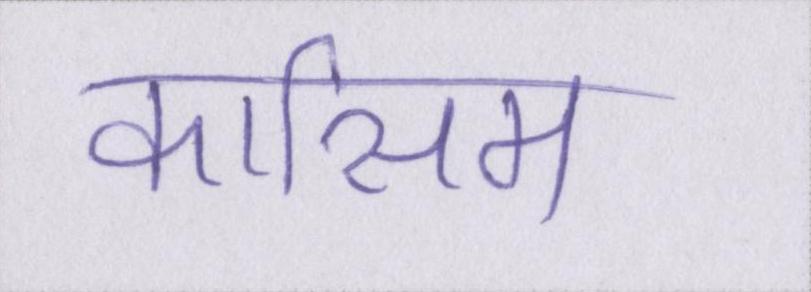 कासिम